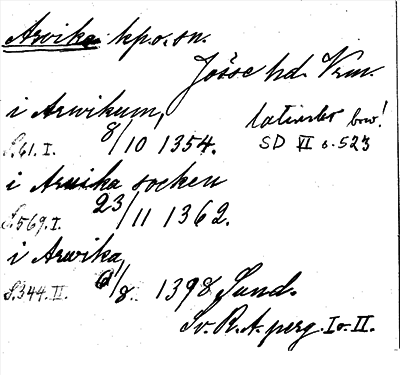 Arvika kpo. sn.
Jösse hd. Vrm.
i Arwikum,
latinska bow!
S.61.I. 8/10 1354.
SD VI s. 523
i Arwika socken
S.569.I. 23/11 1362.
i Arwika,
S.344.II. 6/8. 1398 Sund.
Sv. R. A. perg. I o. II.